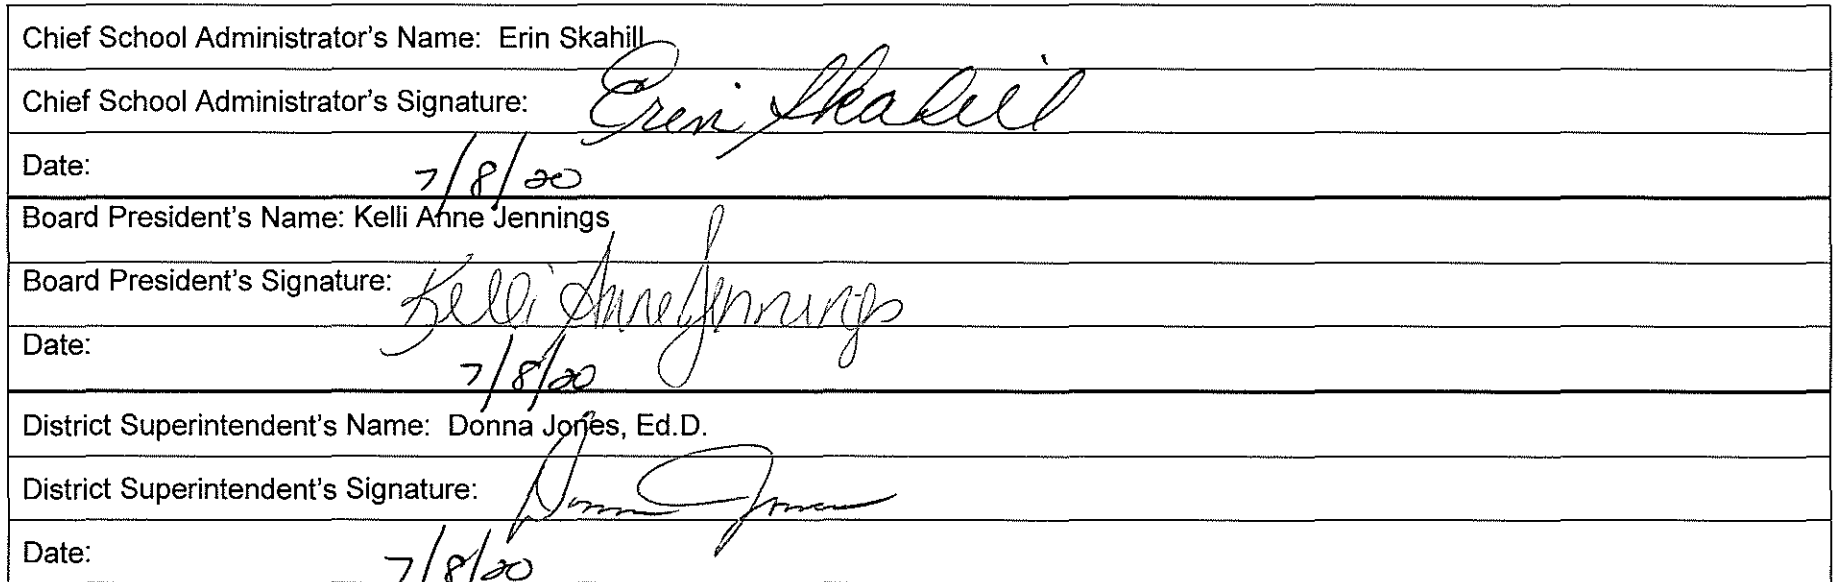 Chief School Administrator's Name: Erin Skahill
Chief School Administrator's Signature: Erin Skahill
Date: 7/8/20
Board President's Name: Kelli Anne Jennings
Board President's Signature: Kelli Anne Jennings
Date: 7/8/20
District Superintendent's Name: Donna Jones, Ed.D.
District Superintendent's Signature: Donna Jones
Date: 7/8/20